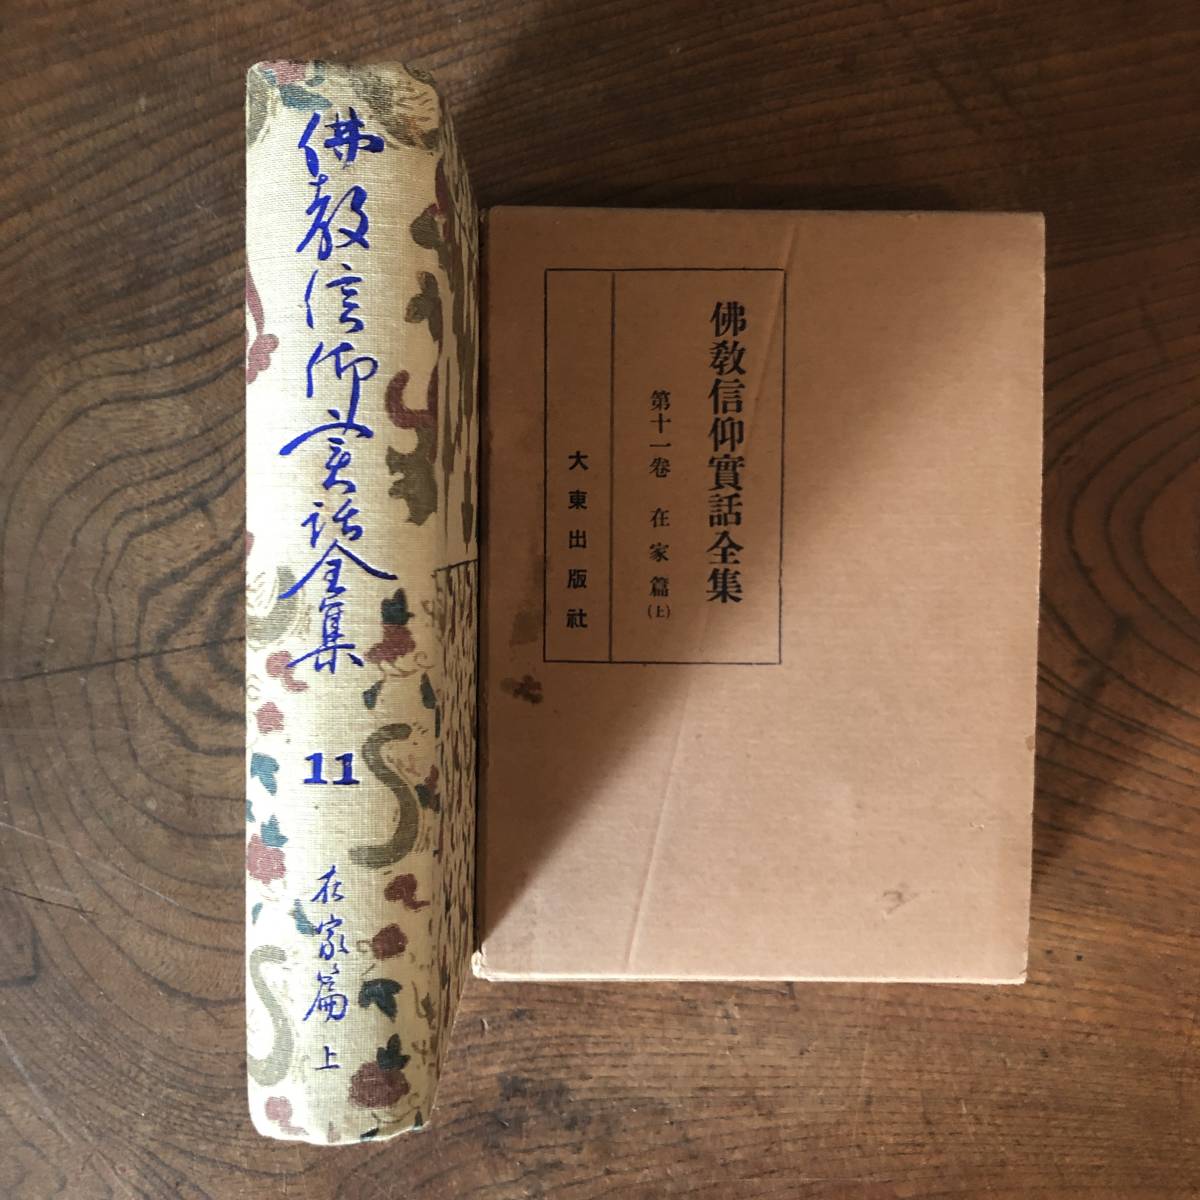 佛教信仰実話全集
11
在家篇
上
佛教信仰實話全集
第十一卷 在家篇(上)
大東出版社